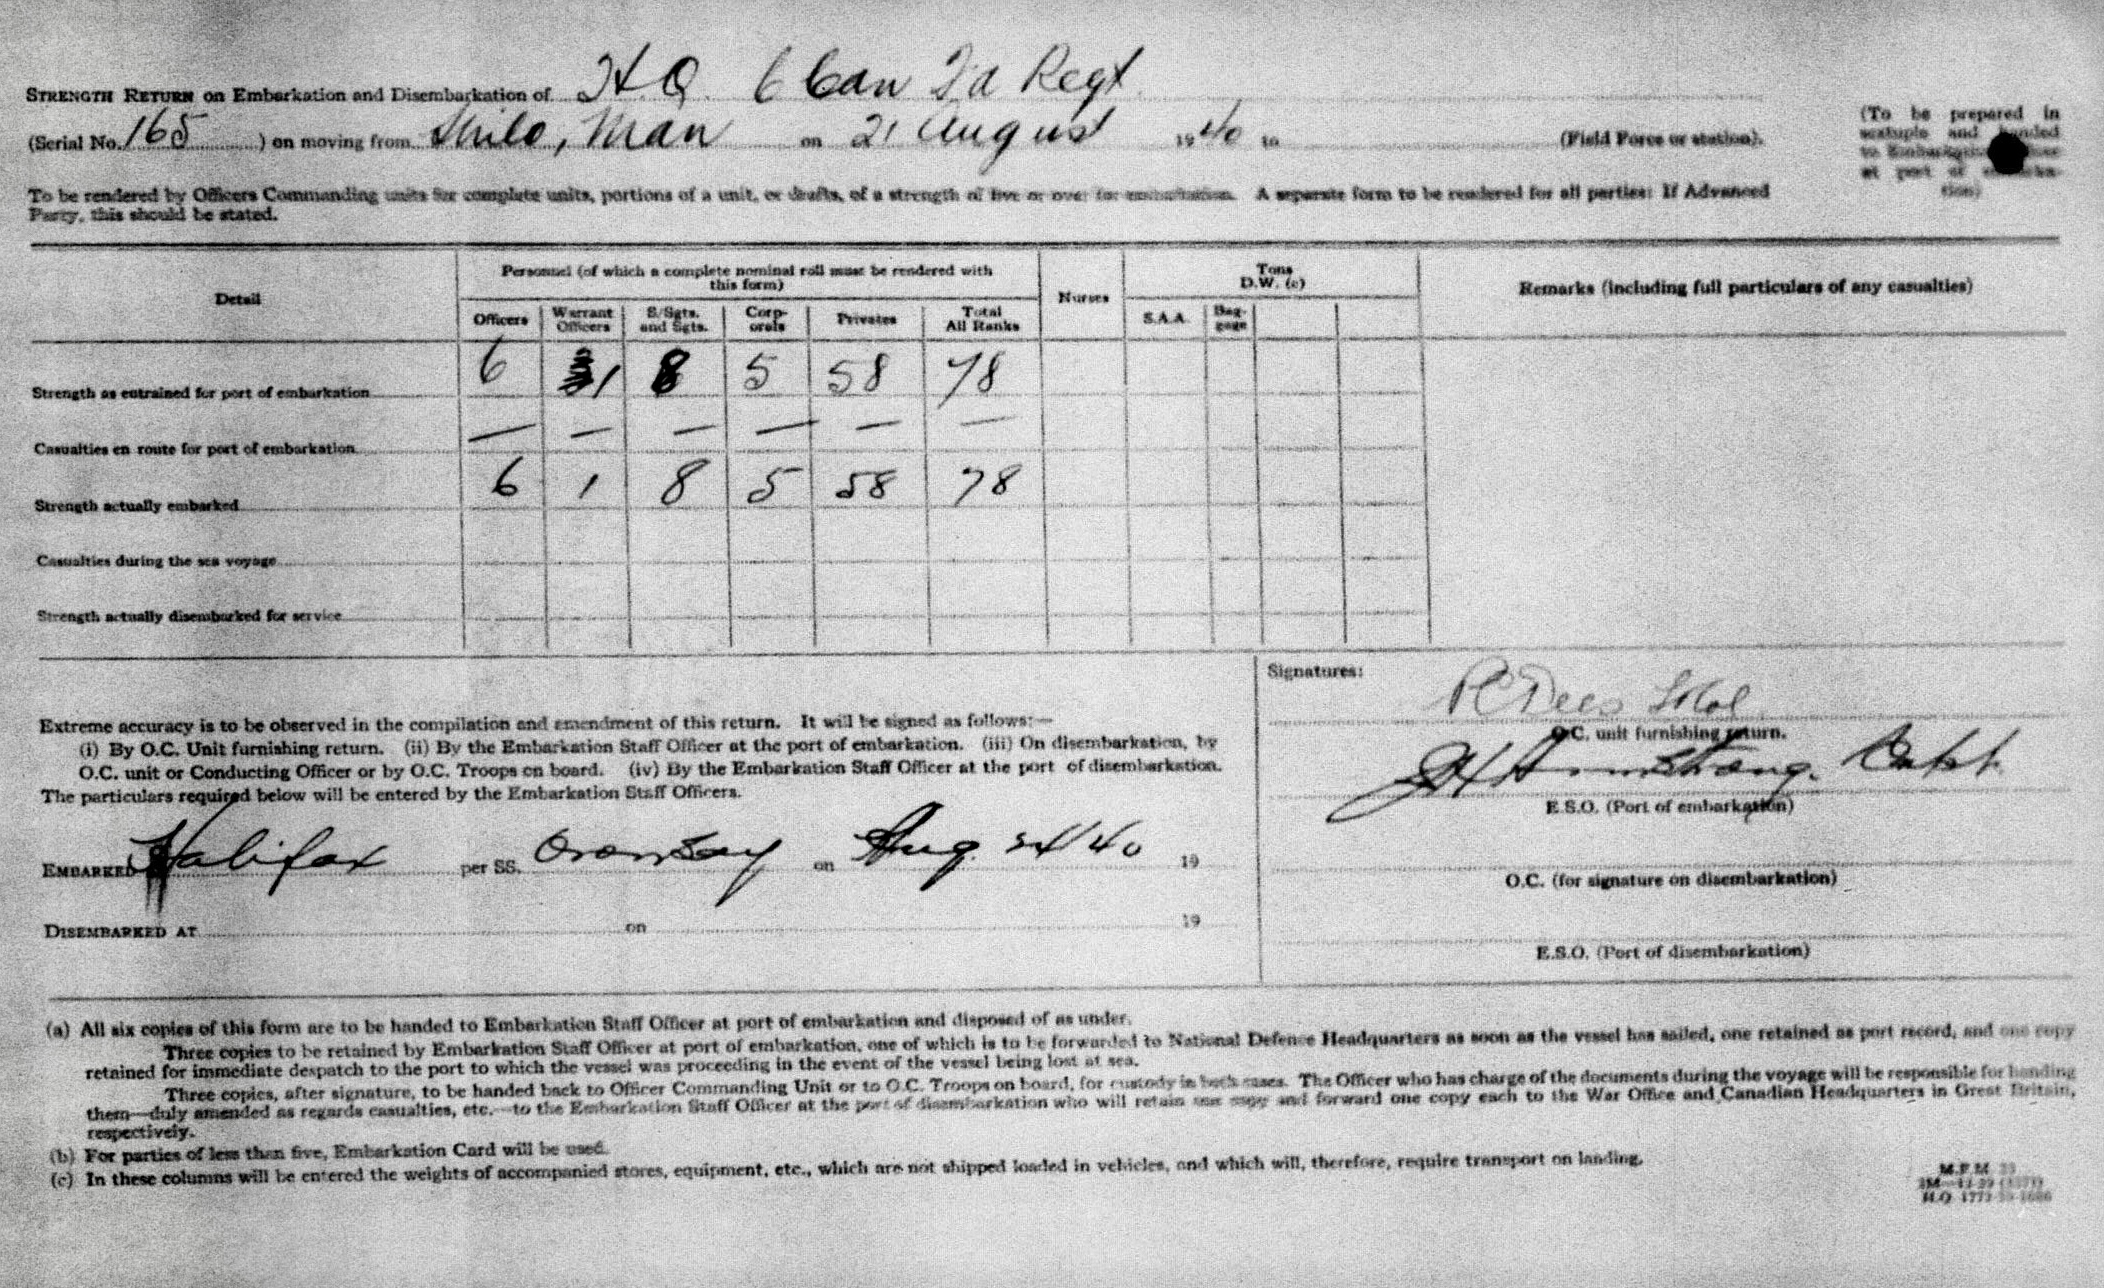 STRENGTH RETURN on Embarkation and Disembarkation of H.Q. 6 Can Fd Regt
(Serial No. 165 ) on moving from Shilo, Man on 21 August 1940 to (Field Force or station).
(To be prepared in
sextuple and handed
to Embarkation
at port of
tion)
To be rendered by Officers Commanding units for complete units, portions of a unit, or drafts, of a strength of five or over for embarkation. A separate form to be rendered for all parties: If Advanced
Party, this should be stated.
Detail
Personnel (of which a complete nominal roll must be rendered with
this form)
Nurses
Tons
D.W. (c)
Remarks (including full particulars of any casualties)
Officers Warrant Officers S/Sgts. and Sgts. Corp-orals Privates Total All Ranks S.A.A. Bag-gage
Strength as entrained for port of embarkation 6 1 8 5 58 78
Casualties en route for port of embarkation — — — — — —
Strength actually embarked 6 1 8 5 58 78
Casualties during the sea voyage
Strength actually disembarked for service
Extreme accuracy is to be observed in the compilation and amendment of this return. It will be signed as follows:—
(i) By O.C. Unit furnishing return. (ii) By the Embarkation Staff Officer at the port of embarkation. (iii) On disembarkation, by
O.C. unit or Conducting Officer or by O.C. Troops on board. (iv) By the Embarkation Staff Officer at the port of disembarkation.
The particulars required below will be entered by the Embarkation Staff Officers.
EMBARKED Halifax per SS. Oronsay on Aug. 24 40 19
DISEMBARKED AT on 19
Signatures:
O.C. unit furnishing return.
JH Armstrong. Capt.
E.S.O. (Port of embarkation)
O.C. (for signature on disembarkation)
E.S.O. (Port of disembarkation)
(a) All six copies of this form are to be handed to Embarkation Staff Officer at port of embarkation and disposed of as under.
Three copies to be retained by Embarkation Staff Officer at port of embarkation, one of which is to be forwarded to National Defence Headquarters as soon as the vessel has sailed, one retained as port record, and one copy
retained for immediate despatch to the port to which the vessel was proceeding in the event of the vessel being lost at sea.
Three copies, after signature, to be handed back to Officer Commanding Unit or to O.C. Troops on board, for custody in both cases. The Officer who has charge of the documents during the voyage will be responsible for handing
them—duly amended as regards casualties, etc.—to the Embarkation Staff Officer at the port of disembarkation who will retain one copy and forward one copy each to the War Office and Canadian Headquarters in Great Britain,
respectively.
(b) For parties of less then five, Embarkation Card will be used.
(c) In these columns will be entered the weights of accompanied stores, equipment, etc., which are not shipped loaded in vehicles, and which will, therefore, require transport on landing.
M.F.M.
H.Q. 1772